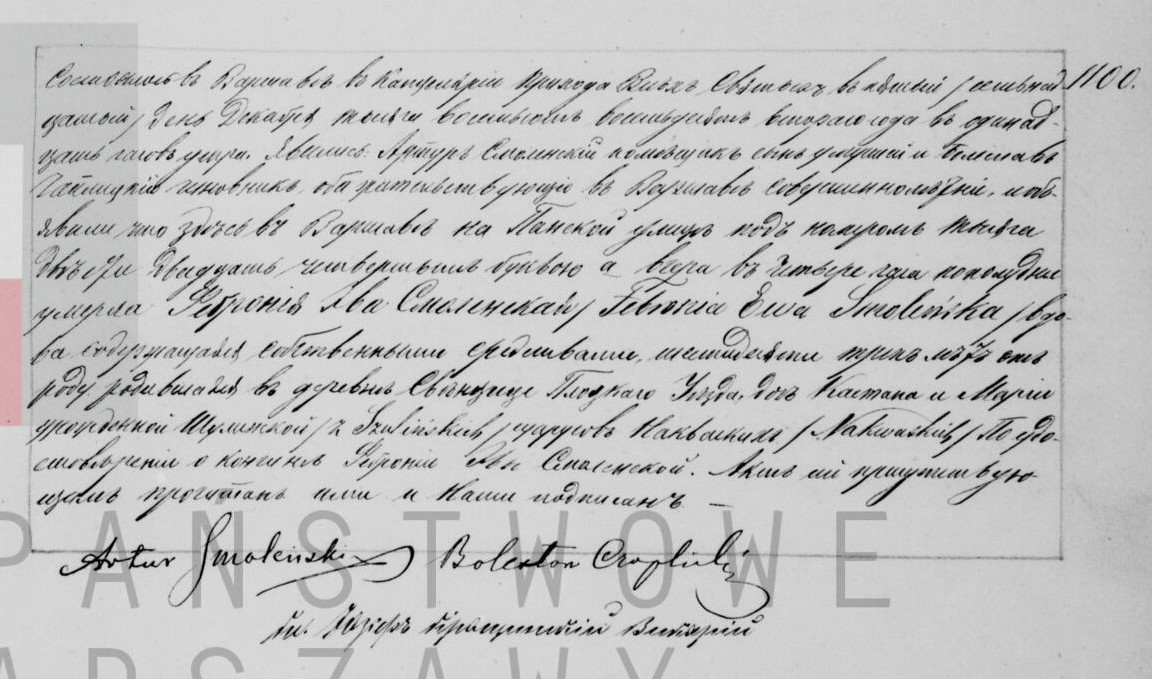 Состоялось въ Варшавѣ въ Канцеляріи прихода Всѣхъ Святыхъ въ пятый / семьнад 1100.
цатый / день Декабря тысяча восемьсотъ восемьдесятъ втораго года въ одинад-
цать часовъ утра. Явились: Артуръ Смоленскій помѣщикъ сынъ умершей и Болеславъ
чиновникъ, оба жительствующіе въ Варшавѣ совершеннолѣтніе, и объ-
явили что здѣсь въ Варшавѣ на Панской улицѣ подъ номеромъ тысяча
двѣсти двадцать четвертымъ буквою а вчера въ четыре часа пополудни
умерла Петронія Эва Смоленская / Petronia Ewa Smoleńska / вдо-
ва содержащаяся собственными средствами, шестидесяти трехъ лѣтъ отъ
роду родившаяся въ деревнѣ Плоцкаго Уѣзда, дочь Каетана и Маріи
урожденной Шулинской / z Szulińskich / супруговъ Накваскихъ / Nakwaskich / По удо-
стовѣреніи о кончинѣ Петроніи Эвы Смоленской. Актъ сей присутствую-
щимъ прочитанъ ими и Нами подписанъ. —
Artur Smoleński
PAŃSTWOWE
Кс. Іосифъ Викарій
WARSZAWY